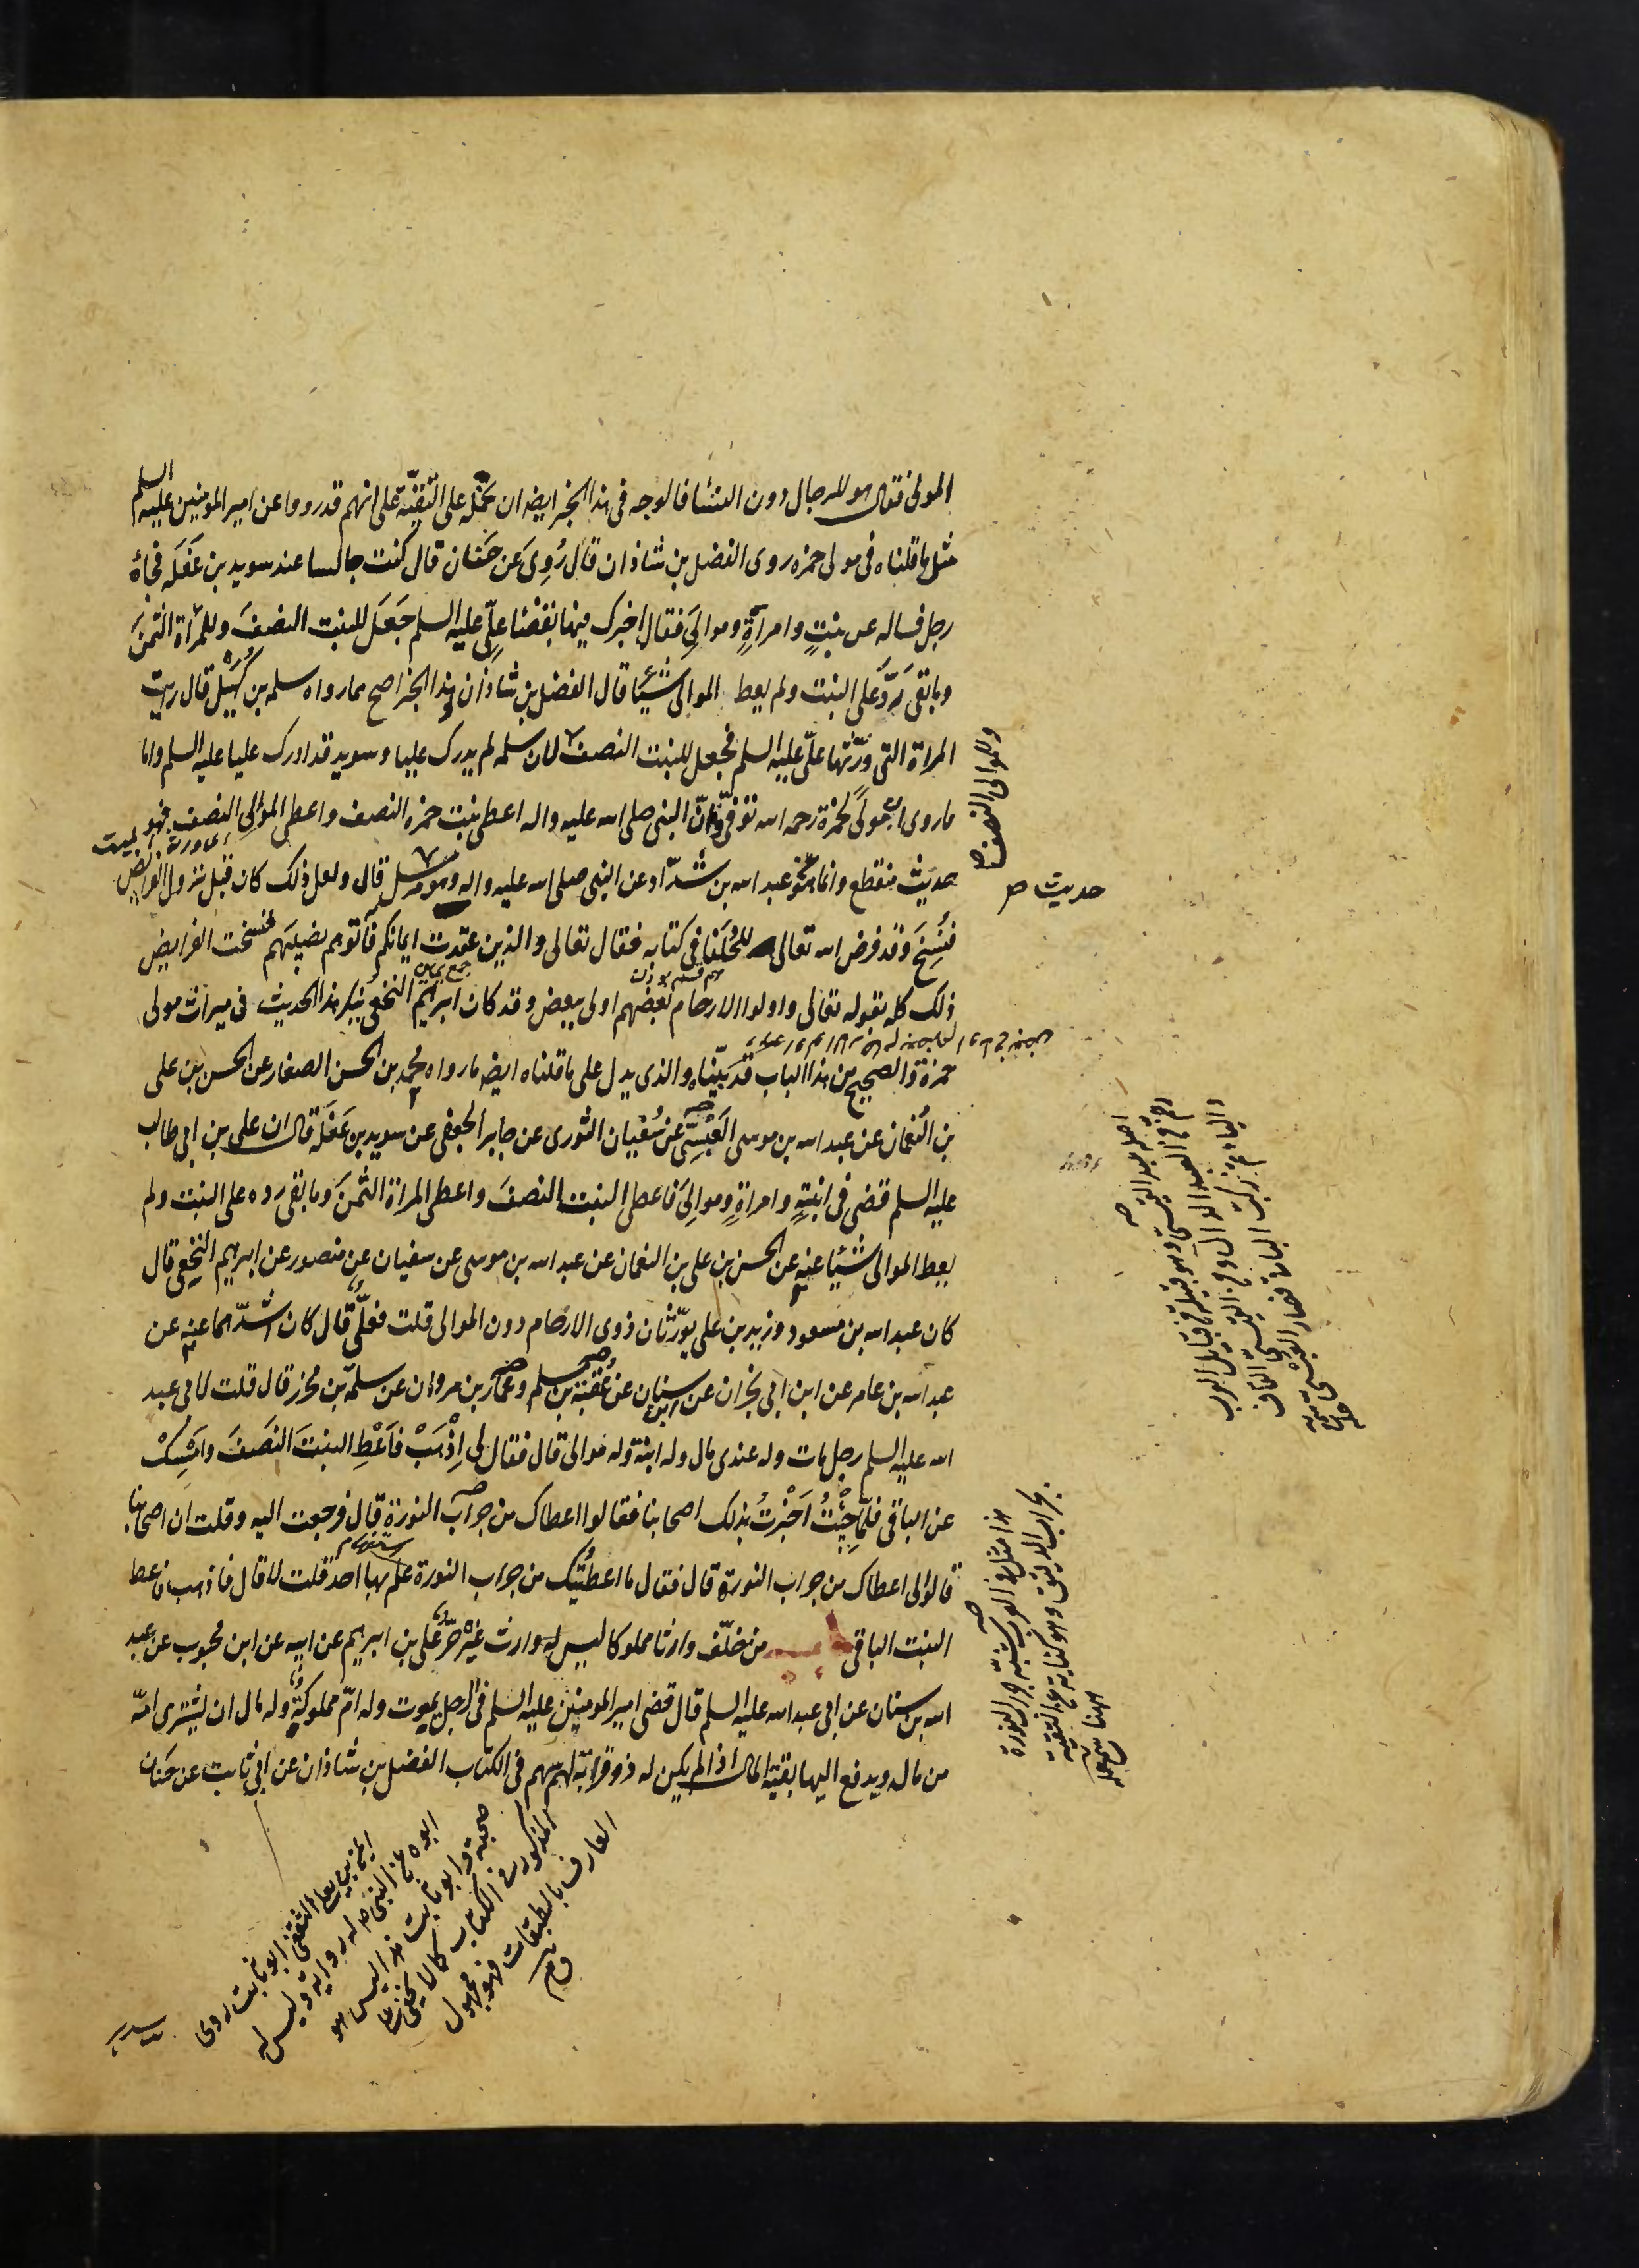 المولى فقال هو للرجال دون النساء فالوجه فى هذا الخبر ايضا ان نحمله على التقيّة على انهم قد رووا عن امير المومنين عليه السلم
مثل ما قلناه فى مولى حمزه روى الفضل بن شاذان قال رُوِىَ عن حَنان قال كنت جالسا عند سويد بن غَفَلَه فجاءه
رجل فساله عن بنتٍ وامراةٍ وموالىَ فقال اخبرك فيها بقضاء علىّ عليه السلم جَعَلَ للبنت النصفَ وللمراة الثمنَ
وما بقى رَدَّ على البنت ولم يعط الموالى شيئا قال الفضل بن شاذان وهذا الخبر اصح مما رواه سلمه بن كُهَيْل قال رايت
المراة التى ورّثها علىّ عليه السلم فجعل للبنت النصف لان سلمه لم يدرك عليا وسويد قد ادرك عليا عليه السلم واما
وللموالى النصف
ما روى ان مولىً لحمزة رحمه الله توفّى وانّ النبى صلى الله عليه واله اعطى بنت حمزه النصف واعطى الموالى النصف فهو
حديث منقطع وانما هو عن عبد الله بن شدّاد عن النبى صلى الله عليه واله وهو مرسل قال ولعل ذلك كان قبل نزول الفرايض
حديث
فنُسِخَ وقد فرض الله تعالى للحُلَفا فى كتابه فقال تعالى والذين عقدت ايمانكم فآتوهم نصيبهم فنسخت الفرايض
ذلك كله بقوله تعالى واولوا الارحام بعضهم اولى ببعض وقد كان ابرهيم النخعى ينكر هذا الحديث فى ميراث مولى
حمزة والصحيح من هذا الباب قد بيّناه والذى يدل على ما قلناه ايضا ما رواه محمد بن الحسن الصفار عن الحسن بن على
بن النعمان عن عبد الله بن موسى العَبْسِىّ عن سُفيان الثورى عن جابر الجعفى عن سويد بن غفَلَة قال ان على بن ابى طالب
عليه السلم قضى فى ابنةٍ وامراةٍ وموالىَ فاعطى البنت النصفَ واعطى المراة الثمنَ وما بقى رده على البنت ولم
يعط الموالى شيئا عنه عن الحسن بن على بن النعمان عن عبد الله بن موسى عن سفيان عن منصور عن ابرهيم النخعى قال
كان عبد الله بن مسعود وزيد بن على يورّثان ذوى الارحام دون الموالى قلت فعلىّ قال كان اشدّهما عنه عن
عبد الله بن عامر عن ابن ابى نجران عن ابن سنان عن عُقبَة بن مسلم وعمار بن مروان عن سلمة بن محرز قال قلت لابى عبد
الله عليه السلم رجل مات وله عندى مال وله ابنة وله موالى قال فقال لى اِذْهَبْ فاَعْطِ البنتَ النصَفَ وامسِكْ
عن الباقى فلمّا جِئتُ اَخْبَرتُ بذلك اصحابنا فقالوا اعطاك من جراب النورة قال فرجعت اليه وقلت ان اصحابنا
قالوا لى اعطاك من جراب النورة قال فقال ما اعطيتُك من جراب النورة علم بها احد قلت لا قال فاذهب فاعط
البنت الباقى باب من خلّف وارثا مملوكا ليس له وارث غيره حرّ على بن ابرهيم عن ابيه عن ابن محبوب عن عبد
الله بن سنان عن ابى عبد الله عليه السلم قال قضى امير المومنين عليه السلم فى الرجل يموت وله امّ مملوكةٌ وله مال ان يشترى امّه
من ماله ويدفع اليها بقية المال اذا لم يكن له ذو قرابة لهم سهم فى الكتاب الفضل بن شاذان عن ابى ثابت عن حنان
اصله عبد القيسى وهو قبيلة من قبايل العرب
هذا مثل فى العرب شبّه جراب النورة
بجراب الدقيق وهو كناية عن التقية
ههنا
ايمن بن يعلى الثقفى ابو ثابت روى
ابوه عن النبى ص له رواية وليس له
صحبة وابو ثابت هذا ليس هو
المذكور فى الكتاب كما لا يخفى على
العارف بالطبقات فهو مجهول